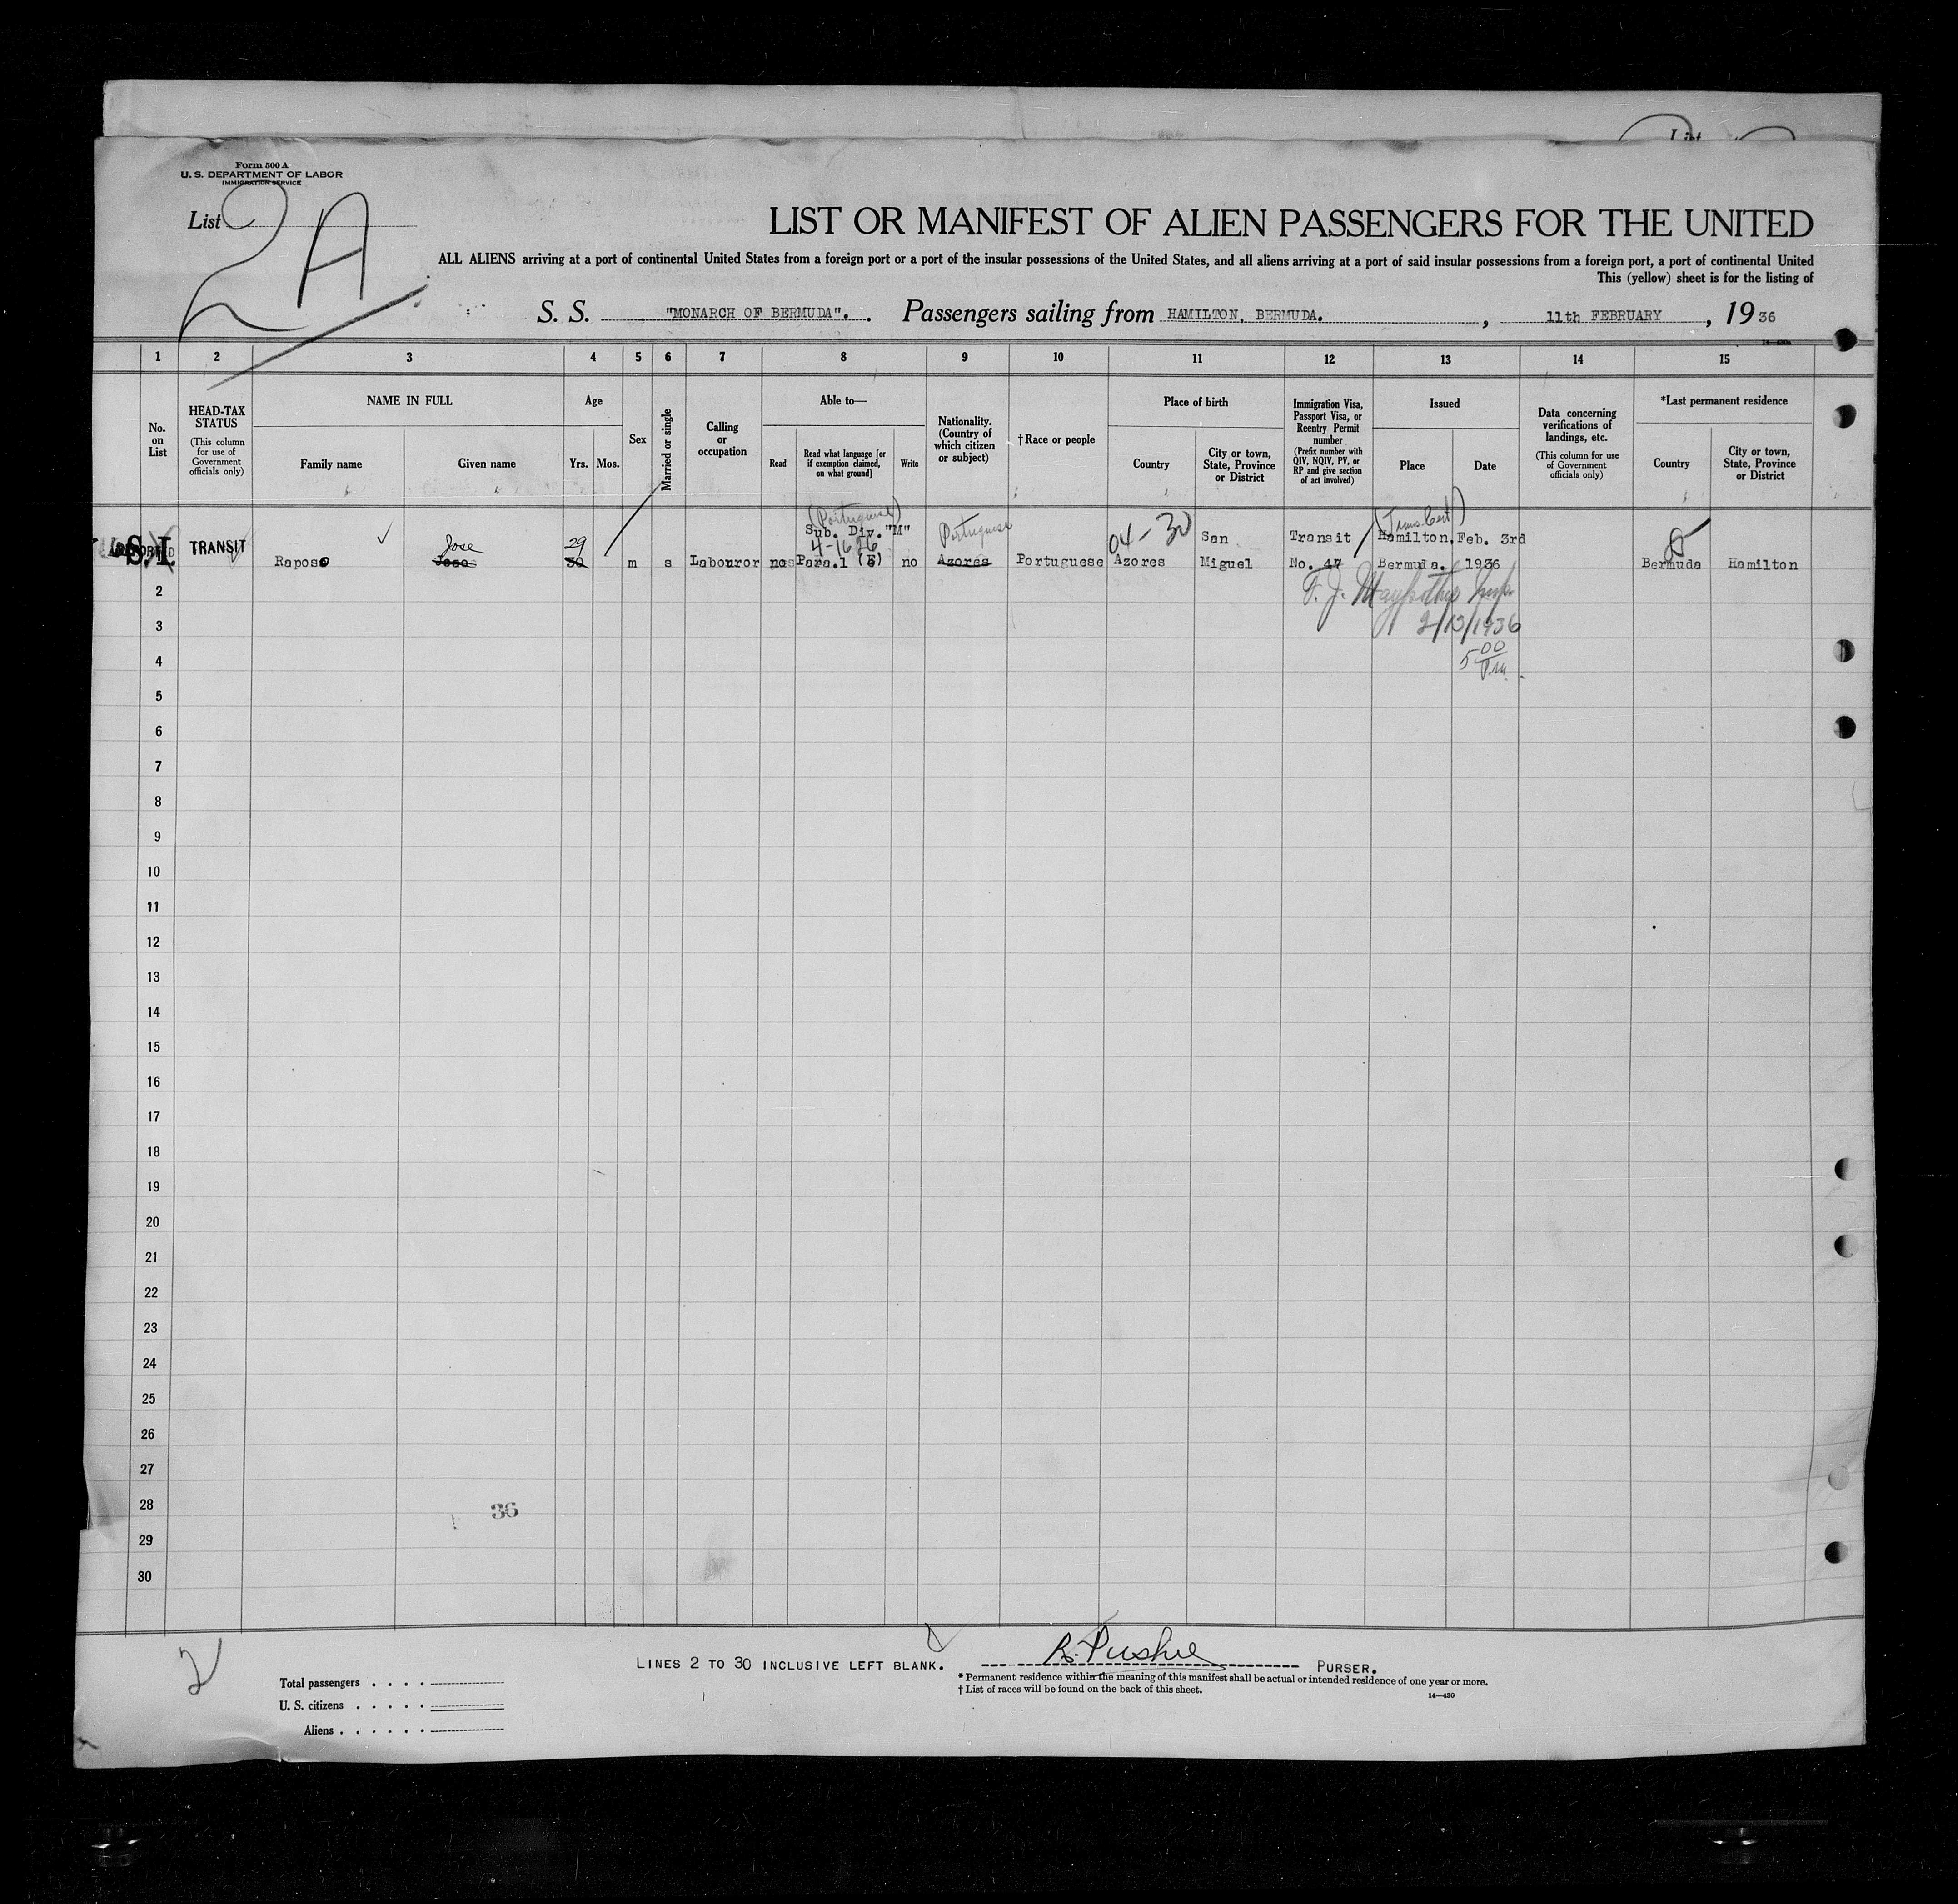 Form 500 A
U. S. DEPARTMENT OF LABOR
IMMIGRATION SERVICE
List 2A
LIST OR MANIFEST OF ALIEN PASSENGERS FOR THE UNITED
ALL ALIENS arriving at a port of continental United States from a foreign port or a port of the insular possessions of the United States, and all aliens arriving at a port of said insular possessions from a foreign port, a port of continental United
This (yellow) sheet is for the listing of
S. S. "MONARCH OF BERMUDA". Passengers sailing from HAMILTON, BERMUDA. , 11th FEBRUARY , 1936
1 2 3 4 5 6 7 8 9 10 11 12 13 14 15
No. on List
HEAD-TAX STATUS
(This column for use of Government officials only)
NAME IN FULL
Family name
Given name
Age
Yrs. Mos.
Sex
Married or single
Calling or occupation
Able to—
Read
Read what language [or if exemption claimed, on what ground]
Write
Nationality. (Country of which citizen or subject)
†Race or people
Place of birth
Country
City or town, State, Province or District
Immigration Visa, Passport Visa, or Reentry Permit number
(Prefix number with QIV, NQIV, PV, or RP and give section of act involved)
Issued
Place
Date
Data concerning verifications of landings, etc.
(This column for use of Government officials only)
*Last permanent residence
Country
City or town, State, Province or District
(Portuguese)
Sub. Div. "M" Portuguese 04-30 San Transit Hamilton, Feb. 3rd
S.I. TRANSIT Jose 29
Raposo 30 m s Labouror Para.1 (E) no Azores Portuguese Azores Miguel No. 47 Bermuda. 1936 Bermuda Hamilton
2
3 2/13/1936
4 5 00 P.m.
5
6
7
8
9
10
11
12
13
14
15
16
17
18
19
20
21
22
23
24
25
26
27
28 36
29
30
2
LINES 2 TO 30 INCLUSIVE LEFT BLANK. PURSER.
Total passengers . . . .
U. S. citizens . . . . .
Aliens . . . . . .
* Permanent residence within the meaning of this manifest shall be actual or intended residence of one year or more.
† List of races will be found on the back of this sheet.
14—430